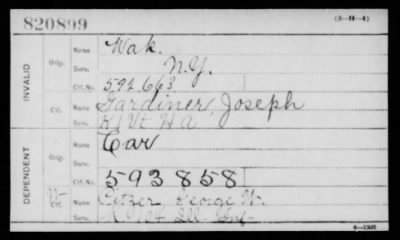 820899
(3-H-4)
INVALID
Orig.
Name Wak.
Serv. N.Y.
Ctf. No. 592,663
Ctf.
Name Gardiner, Joseph
Serv. K 1 Vt H A
DEPENDENT
Orig.
Name Car
Serv.
Ctf. No. 593858
Ctf.
Name Fitzer, George W.
Serv. K 104 Ill. Inf.